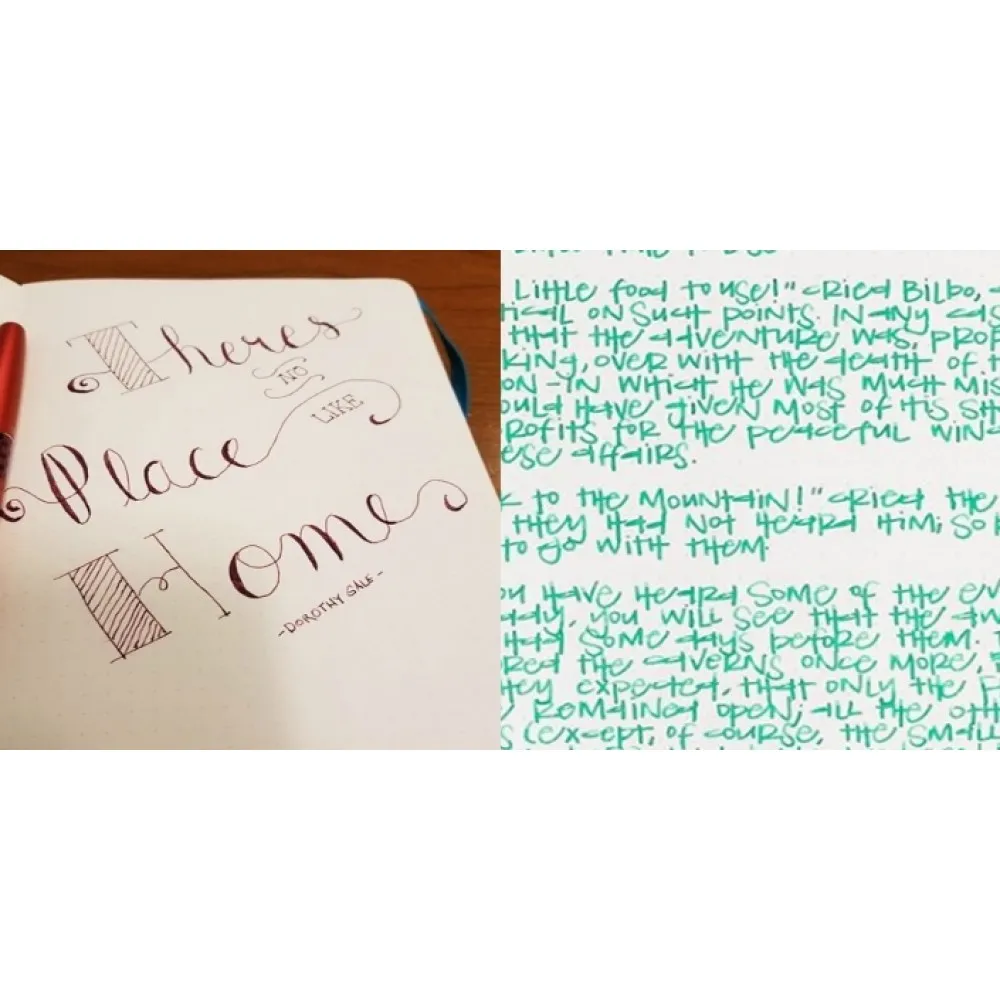 Theres
NO
LIKE
Place
Home
-DOROTHY GALE-
Little food to use!" cried Bilbo,
tical on such points. In any cas
that the adventure was, prop
king, over with the death of t
on-in which he was much mis
ould have given most of his sh
rofits for the peaceful win-
ese affairs.
k to the Mountain!" cried the
they had not heard him; so
to go with them.
ou have heard some of the ev
ady, you will see that the
had some days before them.
red the caverns once more,
hey expected, that only the f
remained open; all the oth
s (except, of course, the small